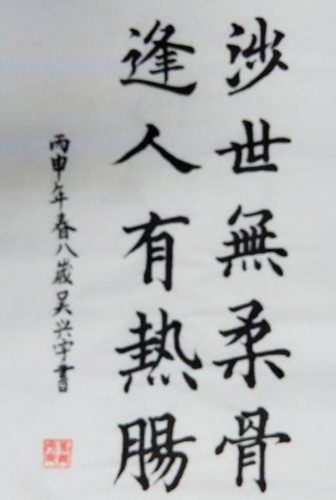 涉世無柔骨
逢人有熱腸
丙申年春八歲吴兴宇書